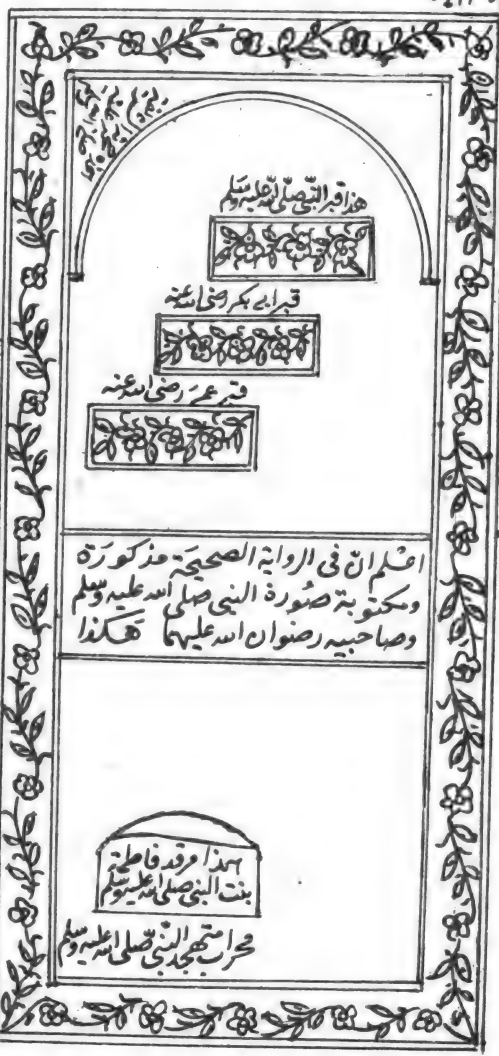 هذا قبر النبي صلى الله عليه وسلم
قبر ابي بكر رضى الله عنه
قبر عمر رضى الله عنه
اعلم ان فى الرواية الصحيحة مذكورة
ومكتوبة صورة النبي صلى الله عليه وسلم
وصاحبيه رضوان الله عليهما هكذا
هذا مرقد فاطمة
بنت النبي صلى الله عليه وسلم
محراب تهجد النبي صلى الله عليه وسلم